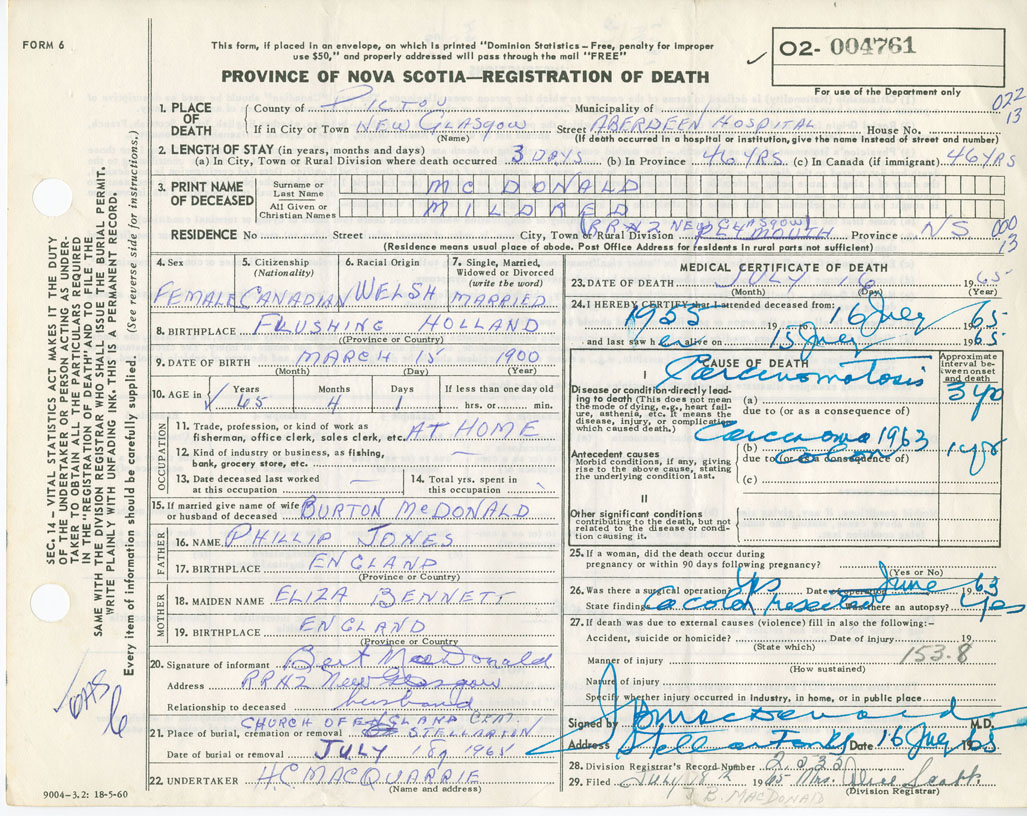 FORM 6
This form, if placed in an envelope, on which is printed "Dominion Statistics – Free, penalty for improper
use $50," and properly addressed will pass through the mail "FREE"
PROVINCE OF NOVA SCOTIA—REGISTRATION OF DEATH
✓ O2- 004761
For use of the Department only
022
13
1. PLACE OF DEATH
County of PICTOU Municipality of
If in City or Town NEW GLASGOW Street ABERDEEN HOSPITAL House No.
(Name) (If death occurred in a hospital or institution, give the name instead of street and number)
2. LENGTH OF STAY (in years, months and days)
(a) In City, Town or Rural Division where death occurred 3 DAYS (b) In Province 46 YRS (c) In Canada (if immigrant) 46 YRS
3. PRINT NAME OF DECEASED
Surname or Last Name MCDONALD
All Given or Christian Names MILDRED
RR#2 NEW GLASGOW
RESIDENCE No Street City, Town or Rural Division PLYMOUTH Province NS
000
13
(Residence means usual place of abode. Post Office Address for residents in rural parts not sufficient)
4. Sex
FEMALE
5. Citizenship (Nationality)
CANADIAN
6. Racial Origin
WELSH
7. Single, Married, Widowed or Divorced (write the word)
MARRIED
8. BIRTHPLACE FLUSHING HOLLAND
(Province or Country)
9. DATE OF BIRTH MARCH 15 1900
(Month) (Day) (Year)
10. AGE in ✓ Years 65 Months 4 Days 1 If less than one day old
hrs. or min.
OCCUPATION
11. Trade, profession, or kind of work as
fisherman, office clerk, sales clerk, etc. AT HOME
12. Kind of industry or business, as fishing,
bank, grocery store, etc. —
13. Date deceased last worked
at this occupation —
14. Total yrs. spent in
this occupation
15. If married give name of wife
or husband of deceased BURTON MCDONALD
FATHER
16. NAME PHILLIP JONES
17. BIRTHPLACE ENGLAND
(Province or Country)
MOTHER
18. MAIDEN NAME ELIZA BENNETT
19. BIRTHPLACE ENGLAND
(Province or Country)
20. Signature of informant Bert MacDonald
Address RR#2 New Glasgow
Relationship to deceased husband
CHURCH OF ENGLAND CEM.
21. Place of burial, cremation or removal STELLARTON
Date of burial or removal JULY 18 1965
22. UNDERTAKER H.C. MACQUARRIE
(Name and address)
9004-3.2: 18-5-60
MEDICAL CERTIFICATE OF DEATH
23. DATE OF DEATH JULY 16 1965
(Month) (Day) (Year)
24. I HEREBY CERTIFY that I attended deceased from:
1955 19 to 16 July 1965
and last saw her alive on 15 July 1965
CAUSE OF DEATH
Approximate interval between onset and death
I
Carcinomatosis
Disease or condition directly leading to death (This does not mean the mode of dying, e.g., heart failure, asthenia, etc. It means the disease, injury, or complication which caused death.)
(a)
due to (or as a consequence of)
Carcinoma 1963
Antecedent causes
Morbid conditions, if any, giving rise to the above cause, stating the underlying condition last.
(b) colon
due to (or as a consequence of)
(c)
II
Other significant conditions
contributing to the death, but not related to the disease or condition causing it.
25. If a woman, did the death occur during
pregnancy or within 90 days following pregnancy?
(Yes or No)
26. Was there a surgical operation? Yes Date of operation June 1963
State findings Ca colon resected Was there an autopsy? Yes
27. If death was due to external causes (violence) fill in also the following:-
Accident, suicide or homicide? Date of injury 19
(State which)
153.8
Manner of injury
(How sustained)
Nature of injury
Specify whether injury occurred in industry, in home, or in public place
Signed by M.D.
Address Stellarton NS Date 16 July 1965
28. Division Registrar's Record Number 2,233
29. Filed July 18th 1965 Mrs. Alice Scott
(Division Registrar)
B. MACDONALD
SEC. 14 – VITAL STATISTICS ACT MAKES IT THE DUTY
OF THE UNDERTAKER OR PERSON ACTING AS UNDER-
TAKER TO OBTAIN ALL THE PARTICULARS REQUIRED
IN THE "REGISTRATION OF DEATH" AND TO FILE THE
SAME WITH THE DIVISION REGISTRAR WHO SHALL ISSUE THE BURIAL PERMIT.
WRITE PLAINLY WITH UNFADING INK. THIS IS A PERMANENT RECORD.
Every item of information should be carefully supplied. (See reverse side for instructions.)